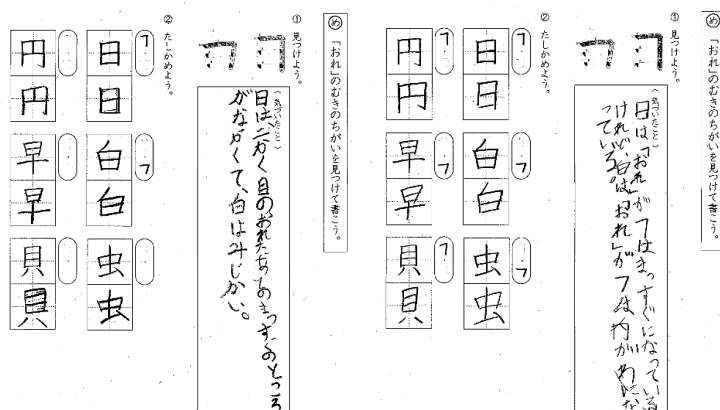 め 「おれ」のむきのちがいを見つけて書こう。
① 見つけよう。
(気づいたこと)
日は「おれ」が フはまっすぐになっている
けれど、白は「おれ」が フは内が
っている。
② たしかめよう。
日 白 虫
日 白 虫
円 早 貝
円 早 貝
め 「おれ」のむきのちがいを見つけて書こう。
① 見つけよう。
(気づいたこと)
日は、二かく目のおれたあとのまっすぐのところ
がながくて、白はみじかい。
② たしかめよう。
日 白 虫
日 白 虫
円 早 貝
円 早 貝